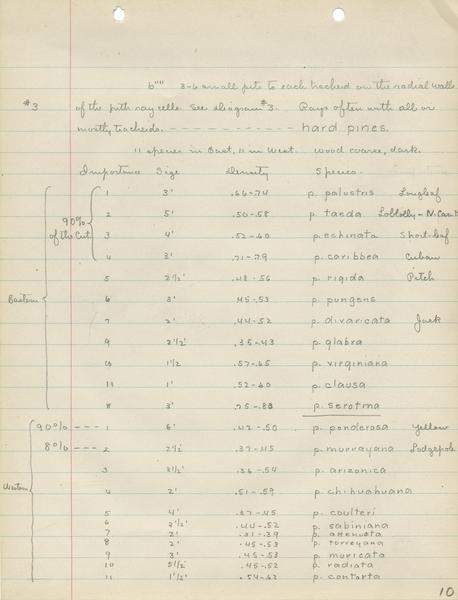 b"" 3-6 small pits to each tracheid on the radial walls
#3 of the pith ray cells. See diagram #3. Rays often with all or
mostly tracheids. - - - - - - - - - - - - hard pines.
11 species in East, 11 in West. wood coarse, dark.
Importance Size Density Species
Eastern
90% of the Cut
1 3' .66-74 p. palustris Longleaf
2 5' .50-58 p. taeda Loblolly-N.Car.
3 4' .52-60 p. echinata Short-leaf
4 3' .71-79 p. caribbea Cuban
5 2½' .48-56 p. rigida Pitch
6 3' .45-53 p. pungens
7 2' .44-52 p. divaricata Jack
9 2½' .35-43 p. glabra
10 1½ .57-65 p. virginiana
11 1' .52-60 p. clausa
8 3' .75-83 p. serotina
Western
90% --- 1 6' .42-.50 p. ponderosa Yellow
8% --- 2 2½' .37-45 p. murrayana Lodgepole
3 2½' .36-.54 p. arizonica
4 2' .51-.59 p. chihuahuana
5 4' .37-45 p. coulteri
6 2½' .44-.52 p. sabiniana
7 2' .31-.39 p. attenuata
8 2' .45-.53 p. torreyana
9 3' .45-.53 p. muricata
10 5½' .45-.52 p. radiata
11 1½' .54-62 p. contorta
10